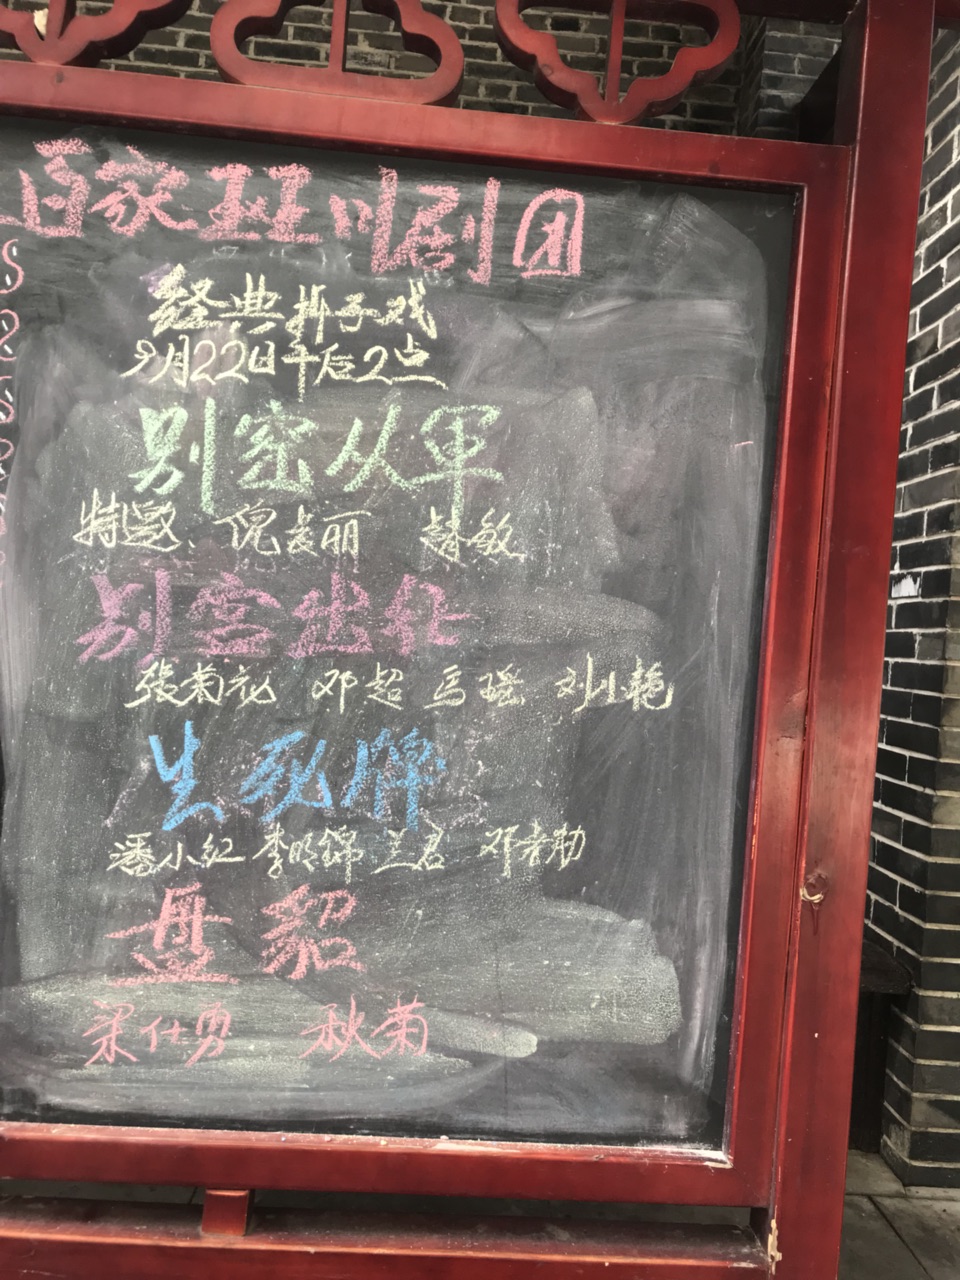 百家班川剧团
经典折子戏
9月22日午后2点
别窑从军
特邀、倪友丽 赵敏
别宫出征
張菊花 邓超 马瑶 刘小艳
生死牌
潘小红 李明锦 兰石 邓孝勋
盘貂
梁仕勇 秋菊